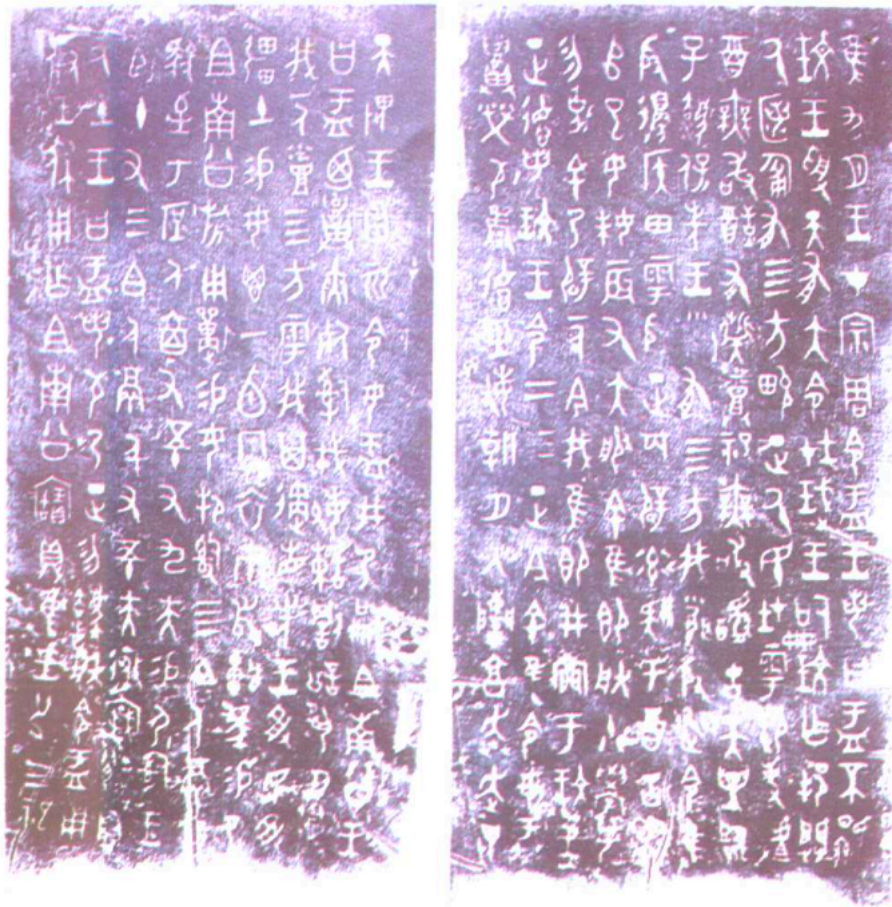 隹九月王才宗周令盂王若曰盂不顯
玟王受天有大令在珷王嗣玟乍邦闢
氒匿匍有四方畯正氒民在雩御事
酉無敢酖有髭烝祀無敢𨢩古天異臨
子灋保先王有四方我聞殷述令隹
殷邊侯田雩殷正百辟率肄于酉古喪師
已女妹辰又大服余隹即朕小學女
勿剋余乃辟一人今我隹即井亯于玟王
正德若玟王令二三正今余隹令女盂
召榮敬雍德巠敏朝夕入讕亯奔走畏
天畏王曰𠀠令女盂井乃嗣且南公王
曰盂迺召夾死司戎敏諫罰訟夙夕召
我一人烝四方雩我其遹省先王受民受
疆土易女鬯一卣冂衣巿舄車馬易乃
且南公旂用狩易女邦司四白人鬲自
馭至于庶人六百又五十又九夫易尸司王
臣十又三白人鬲千又五十夫寏遷自
氒土王曰盂若敬乃正勿灋朕令盂用
對王休用乍且南公寶鼎隹王廿又三祀